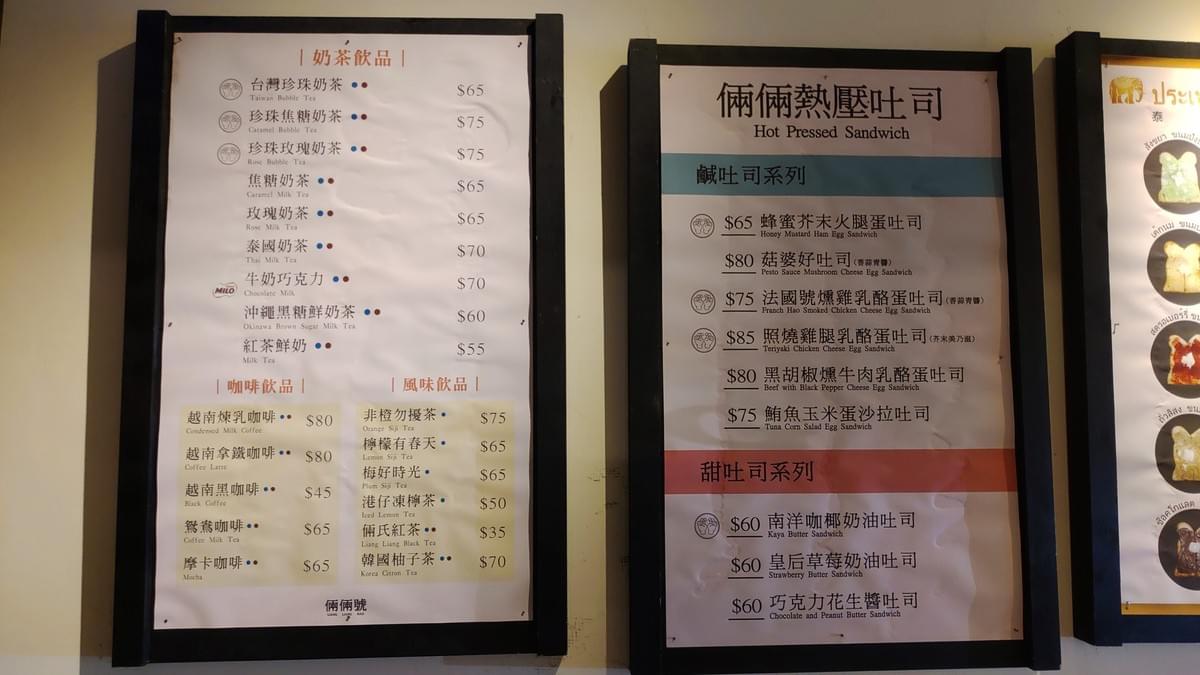 奶茶飲品
台灣珍珠奶茶 $65
Taiwan Bubble Tea
珍珠焦糖奶茶 $75
Caramel Bubble Tea
珍珠玫瑰奶茶 $75
Rose Bubble Tea
焦糖奶茶 $65
Caramel Milk Tea
玫瑰奶茶 $65
Rose Milk Tea
泰國奶茶 $70
Thai Milk Tea
MILO 牛奶巧克力 $70
Chocolate Milk
沖繩黑糖鮮奶茶 $60
Okinawa Brown Sugar Milk Tea
紅茶鮮奶 $55
Milk Tea
咖啡飲品
越南煉乳咖啡 $80
Condensed Milk Coffee
越南拿鐵咖啡 $80
Coffee Latte
越南黑咖啡 $45
Black Coffee
鴛鴦咖啡 $65
Coffee Milk Tea
摩卡咖啡 $65
Mocha
風味飲品
非橙勿擾茶 $75
Orange Siji Tea
檸檬有春天 $65
Lemon Siji Tea
梅好時光 $65
Plum Siji Tea
港仔凍檸茶 $50
Iced Lemon Tea
倆氏紅茶 $35
Liang Liang Black Tea
韓國柚子茶 $70
Korea Citron Tea
倆倆號
倆倆熱壓吐司
Hot Pressed Sandwich
鹹吐司系列
$65 蜂蜜芥末火腿蛋吐司
Honey Mustard Ham Egg Sandwich
$80 菇婆好吐司(香蒜青醬)
Pesto Sauce Mushroom Cheese Egg Sandwich
$75 法國號燻雞乳酪蛋吐司(香蒜青醬)
Franch Hao Smoked Chicken Cheese Egg Sandwich
$85 照燒雞腿乳酪蛋吐司(芥末美乃滋)
Teriyaki Chicken Cheese Egg Sandwich
$80 黑胡椒燻牛肉乳酪蛋吐司
Beef with Black Pepper Cheese Egg Sandwich
$75 鮪魚玉米蛋沙拉吐司
Tuna Corn Salad Egg Sandwich
甜吐司系列
$60 南洋咖椰奶油吐司
Kaya Butter Sandwich
$60 皇后草莓奶油吐司
Strawberry Butter Sandwich
$60 巧克力花生醬吐司
Chocolate and Peanut Butter Sandwich
泰